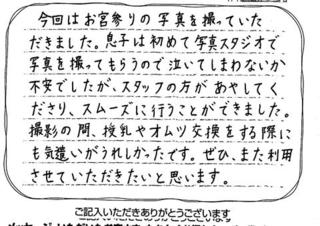 今回はお宮参りの写真を撮っていた
だきました。息子は初めて写真スタジオで
写真を撮ってもらうので泣いてしまわないか
不安でしたが、スタッフの方があやしてく
ださり、スムーズに行うことができました。
撮影の間、授乳やオムツ交換をする際に
も気遣いがうれしかったです。ぜひ、また利用
させていただきたいと思います。
ご記入いただきありがとうございます